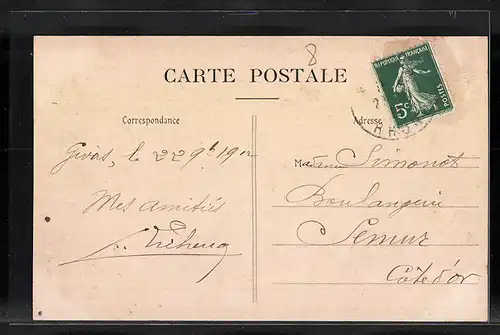 8
CARTE POSTALE
REPUBLIQUE FRANÇAISE
5c
POSTES
Correspondance
Adresse
Givors, le 22 9b 1912
Madame Simonot
Mes amitiés
Boulangerie
Semur
Côte d'or